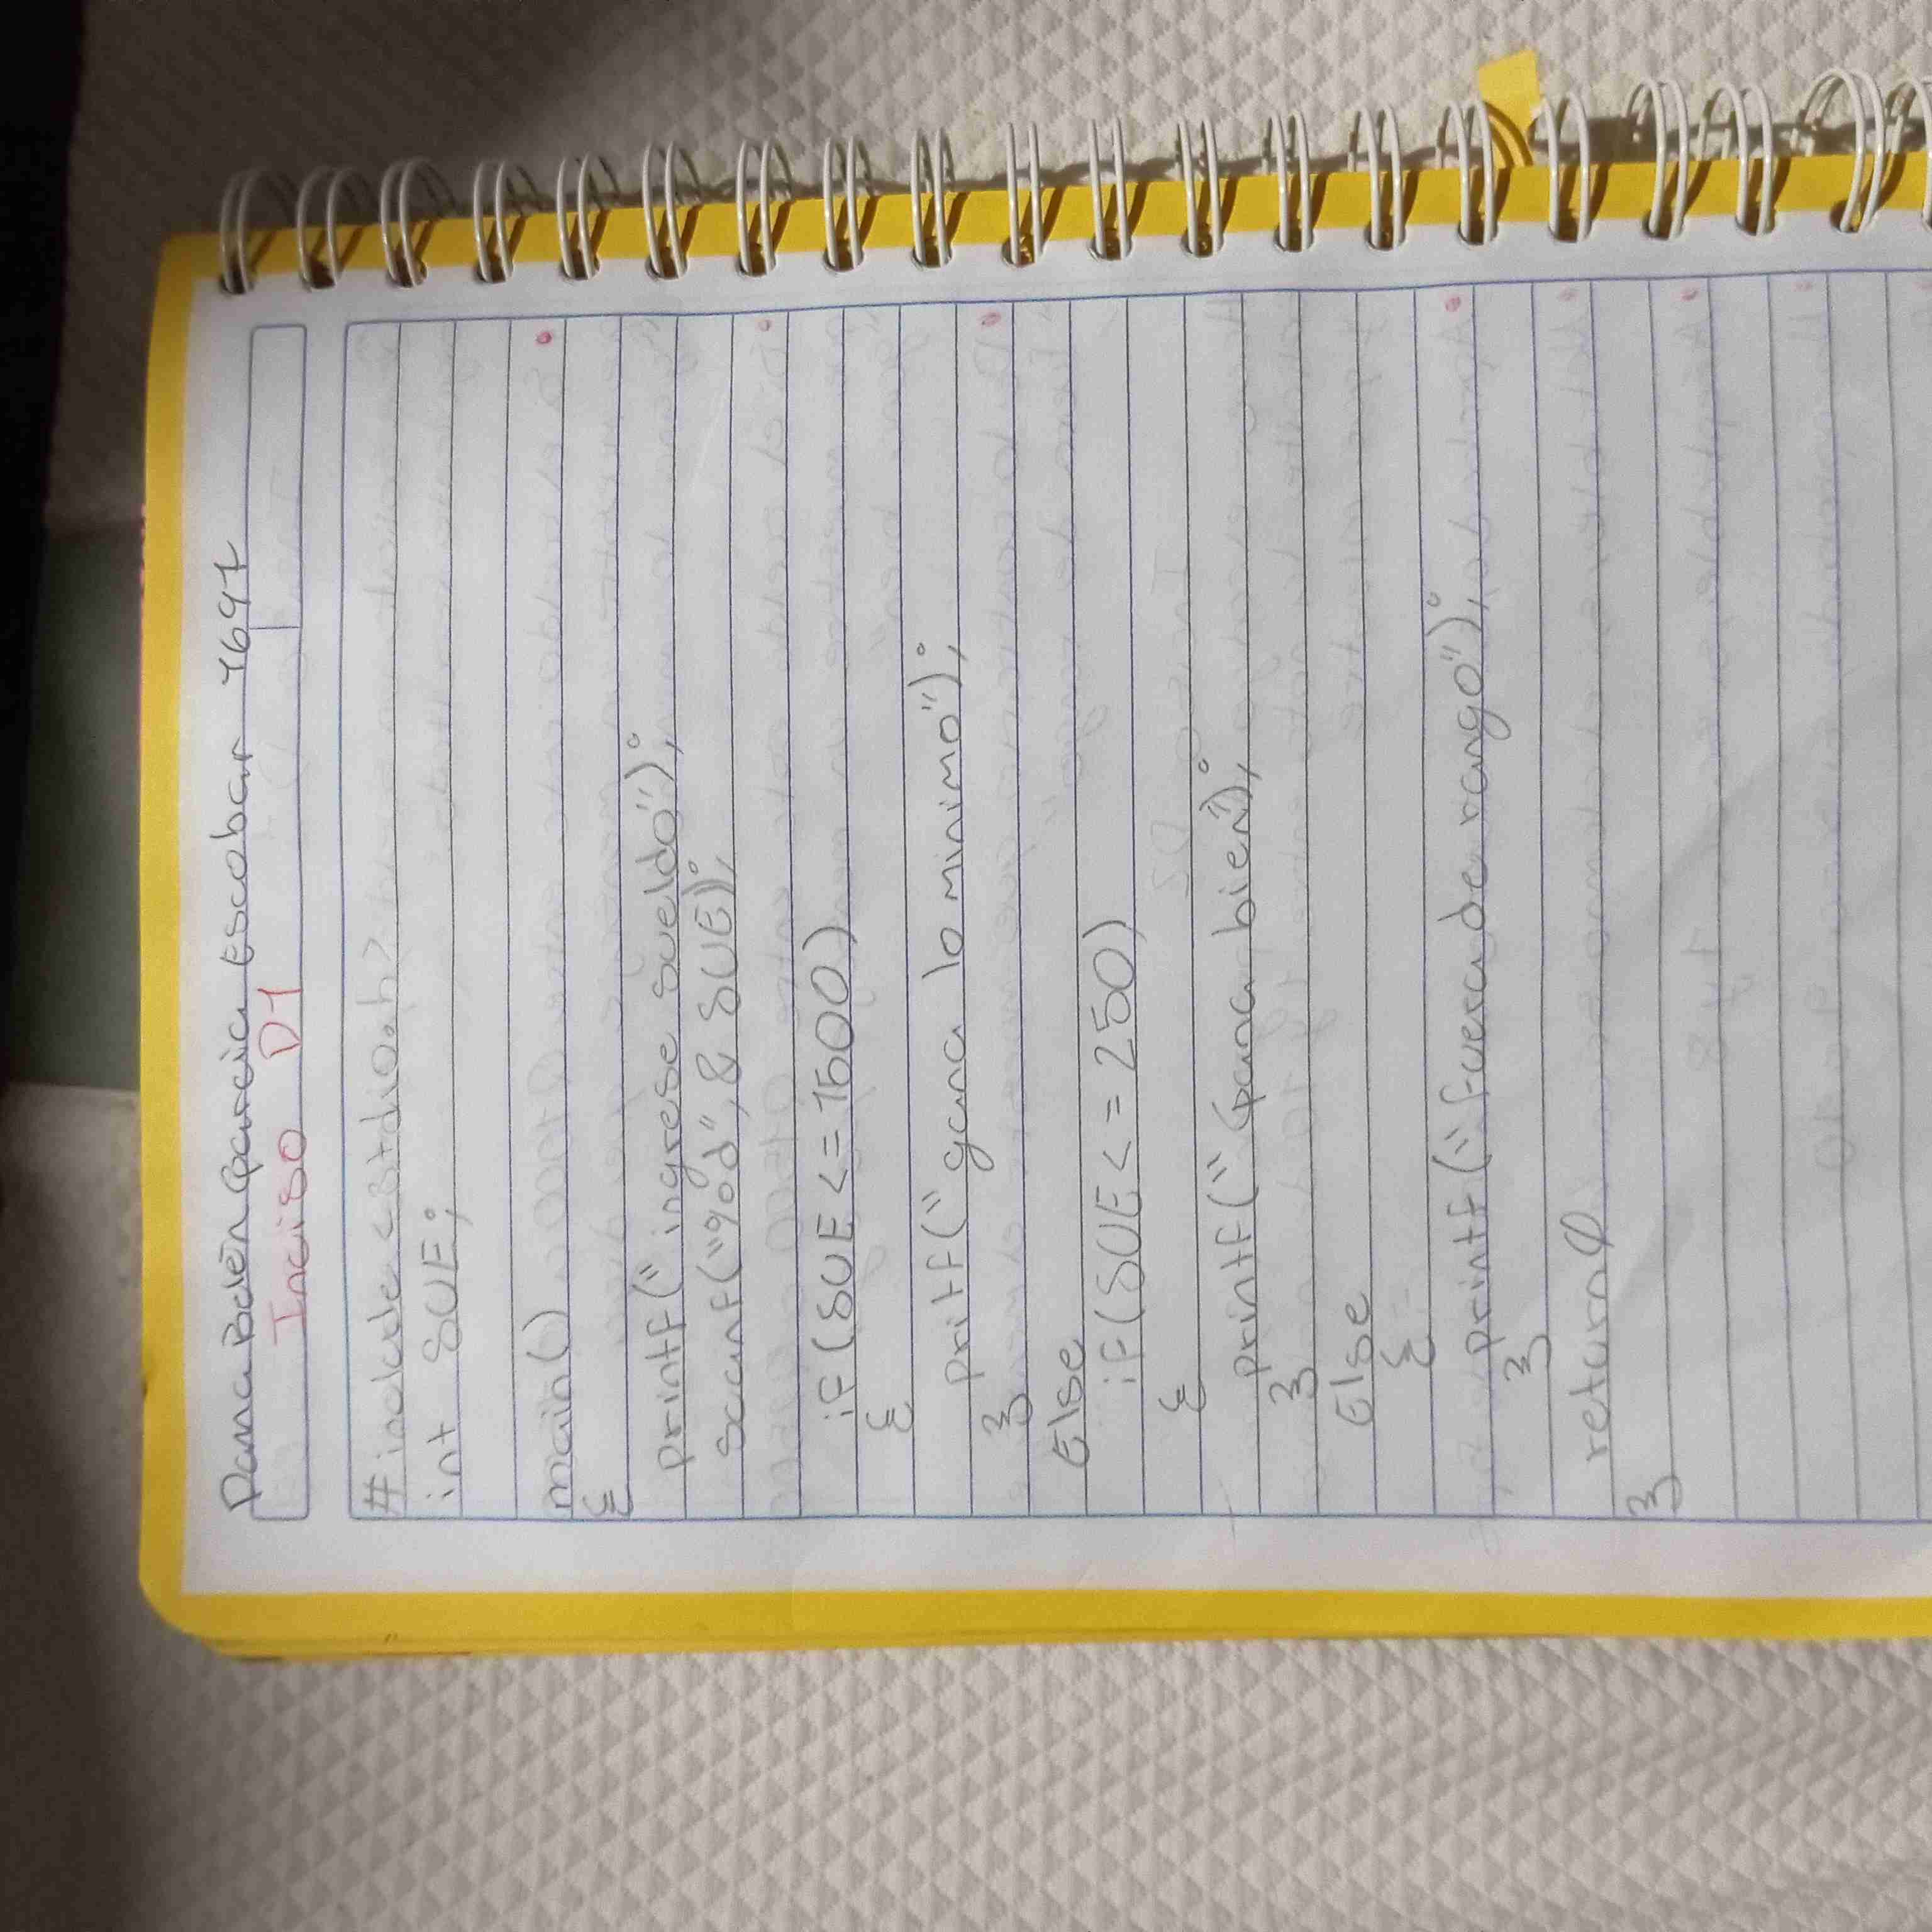 Dana Belén García Escobar 4691
Inciso D1
#include <stdio.h>
int SUE;
main()
{
printf("ingrese sueldo");
scanf("%d", & SUE);
if (SUE <= 1500)
{
pritf("gana lo minimo");
}
Else
if (SUE < = 250)
{
printf("Gana bien");
}
Else
{
printf("fuera de rango");
}
return 0
}